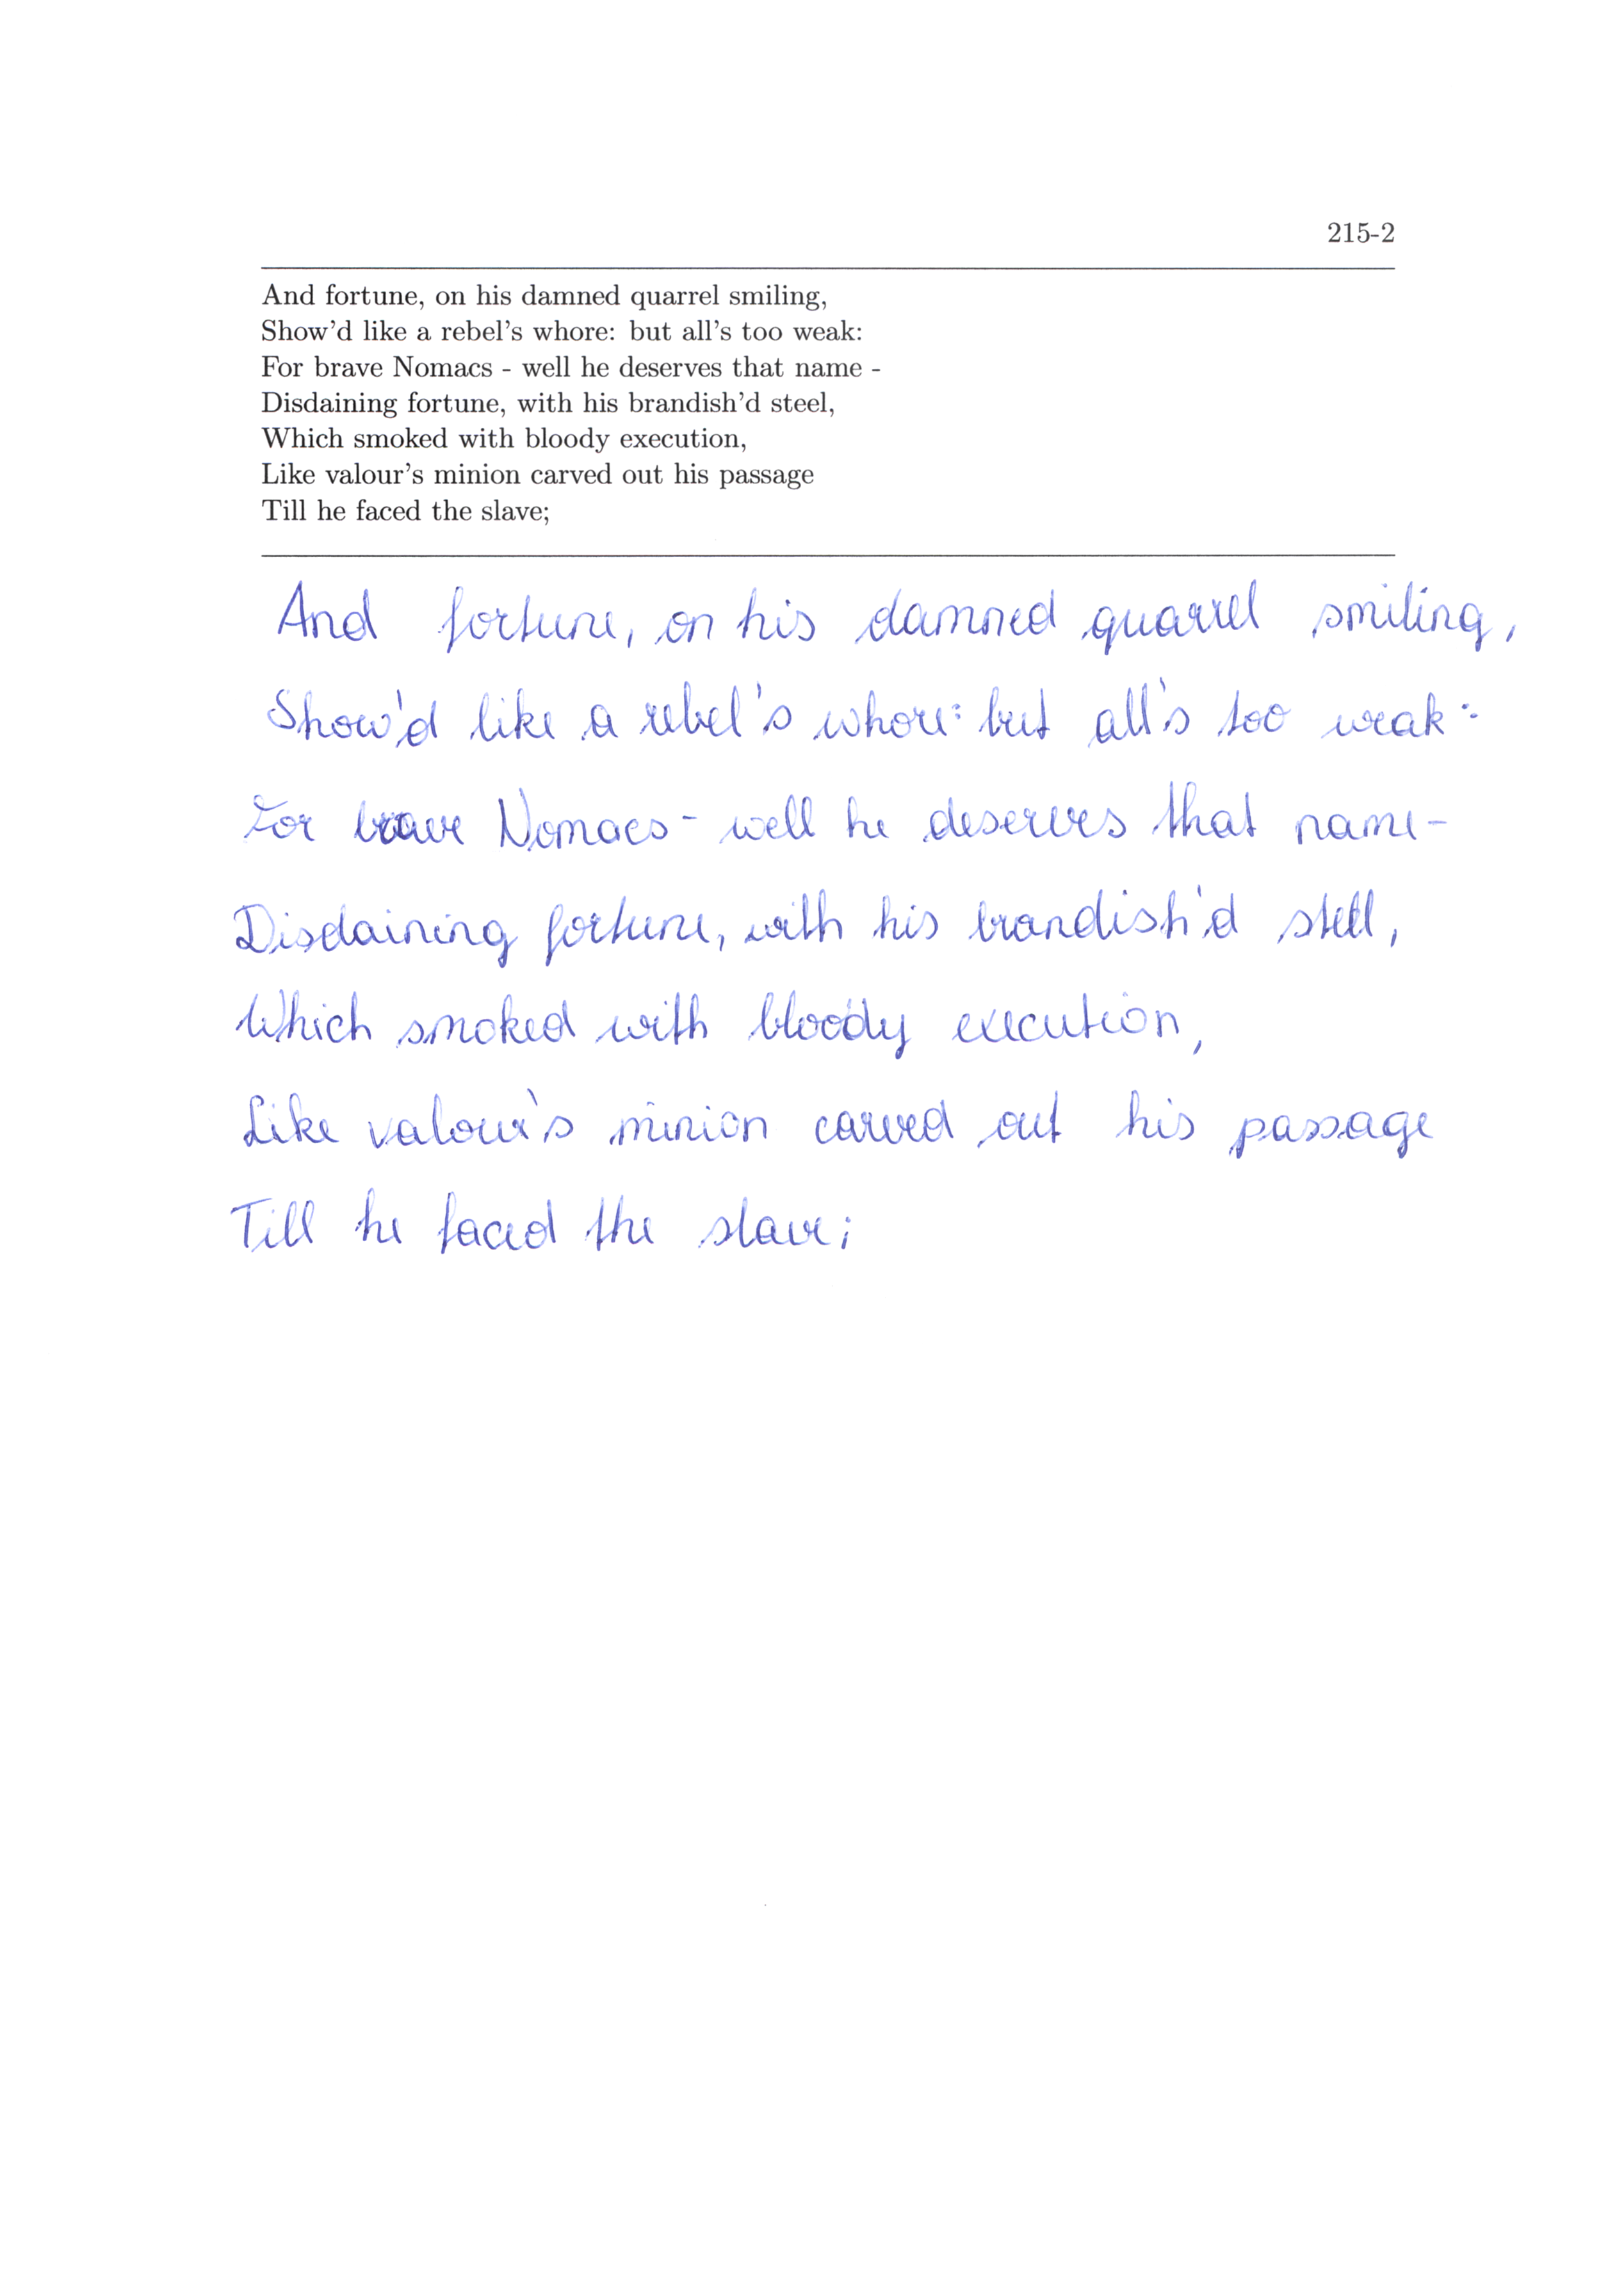 215-2
And fortune, on his damned quarrel smiling,
Show'd like a rebel's whore: but all's too weak:
For brave Nomacs - well he deserves that name -
Disdaining fortune, with his brandish'd steel,
Which smoked with bloody execution,
Like valour's minion carved out his passage
Till he faced the slave;
And fortune, on his damned quarrel smiling,
Show'd like a rebel's whore: but all's too weak:
For brave Nomacs - well he deserves that name -
Disdaining fortune, with his brandish'd steel,
Which smoked with bloody execution,
Like valour's minion carved out his passage
Till he faced the slave;